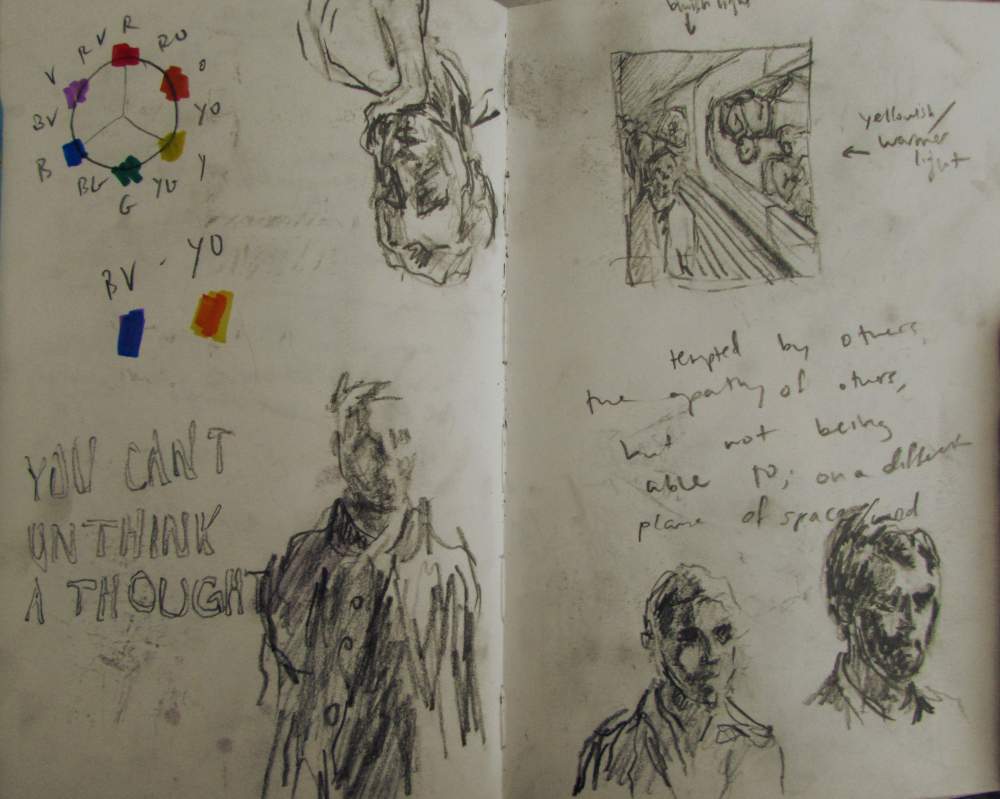 R
RV
RO
V
O
BV
YO
B
Y
BG
YG
G
BV - YO
YOU CAN'T
UNTHINK
A THOUGHT
bluish light
yellowish/
warmer
light
tempted by others,
the apathy of others,
but not being
able to; on a different
plane of space/mind